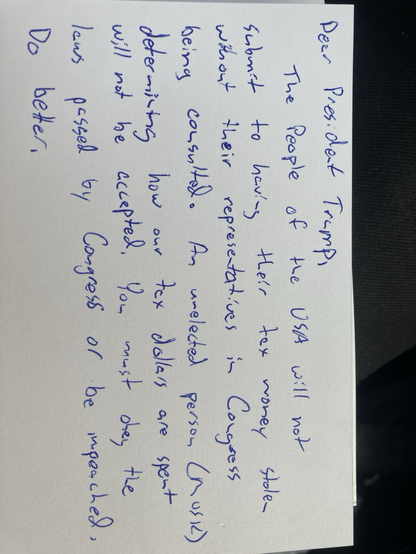 Dear President Trump,
The People of the USA will not
submit to having their tax money stolen
without their representatives in Congress
being consulted. An unelected person (Musk)
determining how our tax dollars are spent
will not be accepted. You must obey the
laws passed by Congress or be impeached.
Do better.